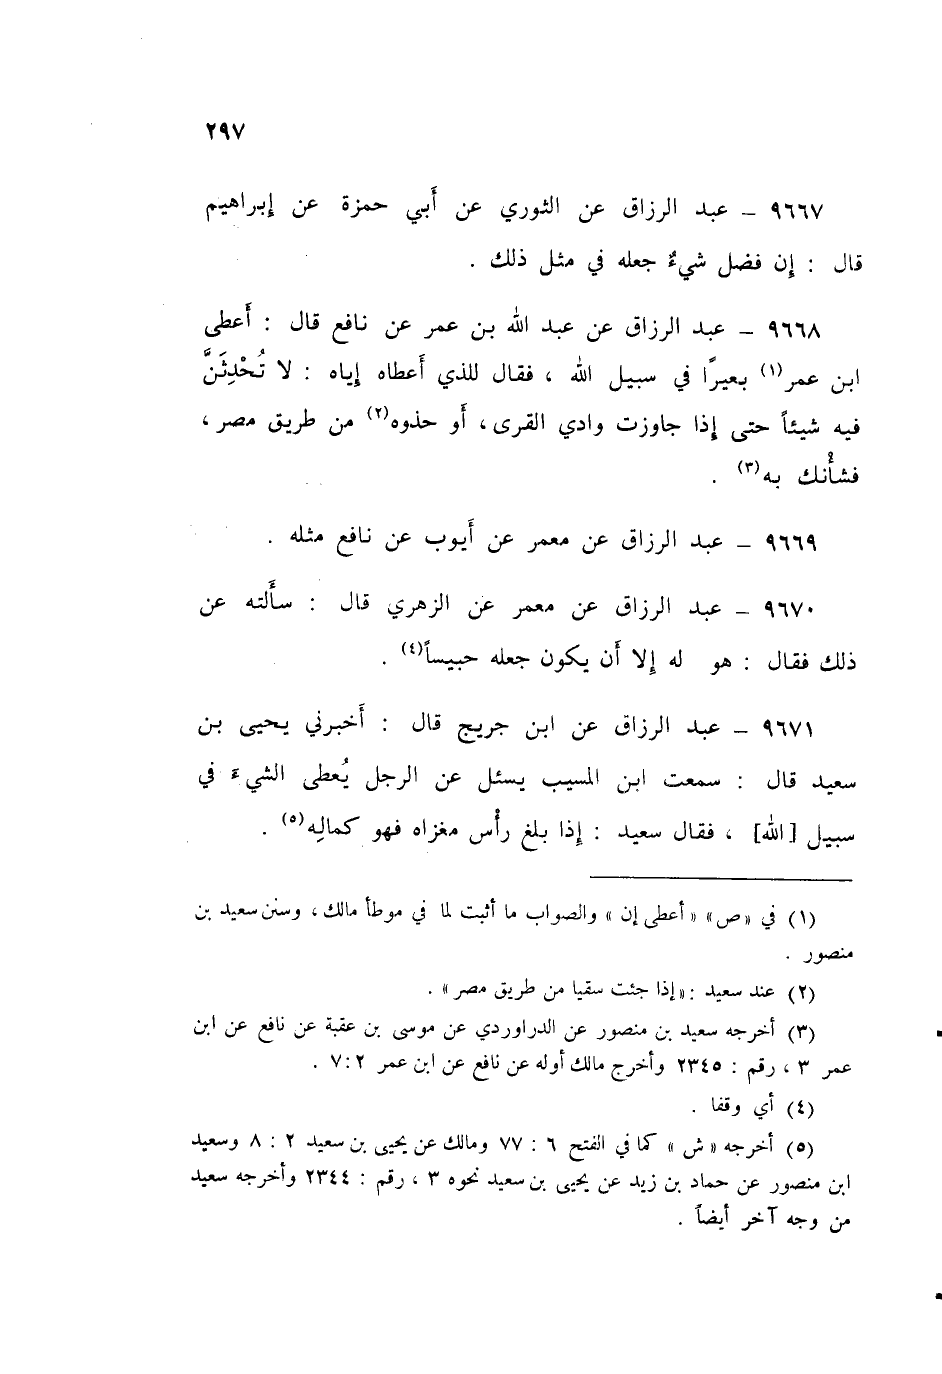 ٢٩٧
٩٦٦٧ – عبد الرزاق عن الثوري عن أَبي حمزة عن إبراهيم
قال : إن فضل شيءٌ جعله في مثل ذلك .
٩٦٦٨ – عبد الرزاق عن عبد الله بن عمر عن نافع قال : أَعطى
ابن عمر(١) بعيرًا في سبيل الله ، فقال للذي أَعطاه إياه : لا تُحْدِثَنَّ
فيه شيئاً حتى إذا جاوزت وادي القرى، أَو حذوه(٢) من طريق مصر ،
فشأْنك به(٣) .
٩٦٦٩ – عبد الرزاق عن معمر عن أَيوب عن نافع مثله .
٩٦٧٠ – عبد الرزاق عن معمر عن الزهري قال : سأَلته عن
ذلك فقال : هو له إلا أَن يكون جعله حبيساً(٤) .
٩٦٧١ – عبد الرزاق عن ابن جريج قال : أَخبرني يحيى بن
سعيد قال : سمعت ابن المسيب يسئل عن الرجل يُعطى الشيء في
سبيل [الله] ، فقال سعيد : إذا بلغ رأْس مغزاه فهو كمالِه(٥) .
(١) في «ص» «أعطى إن» والصواب ما أثبت لما في موطأ مالك، وسنن سعيد بن
منصور .
(٢) عند سعيد :«إذا جئت سقيا من طريق مصر» .
(٣) أخرجه سعيد بن منصور عن الدراوردي عن موسى بن عقبة عن نافع عن ابن
عمر ٣ ، رقم : ٢٣٤٥ وأخرج مالك أوله عن نافع عن ابن عمر ٧:٢ .
(٤) أي وقفا .
(٥) أخرجه «ش» كما في الفتح ٦ : ٧٧ ومالك عن يحيى بن سعيد ٢ : ٨ وسعيد
ابن منصور عن حماد بن زيد عن يحيى بن سعيد نحوه ٣ ، رقم : ٢٣٤٤ وأخرجه سعيد
من وجه آخر أيضاً .